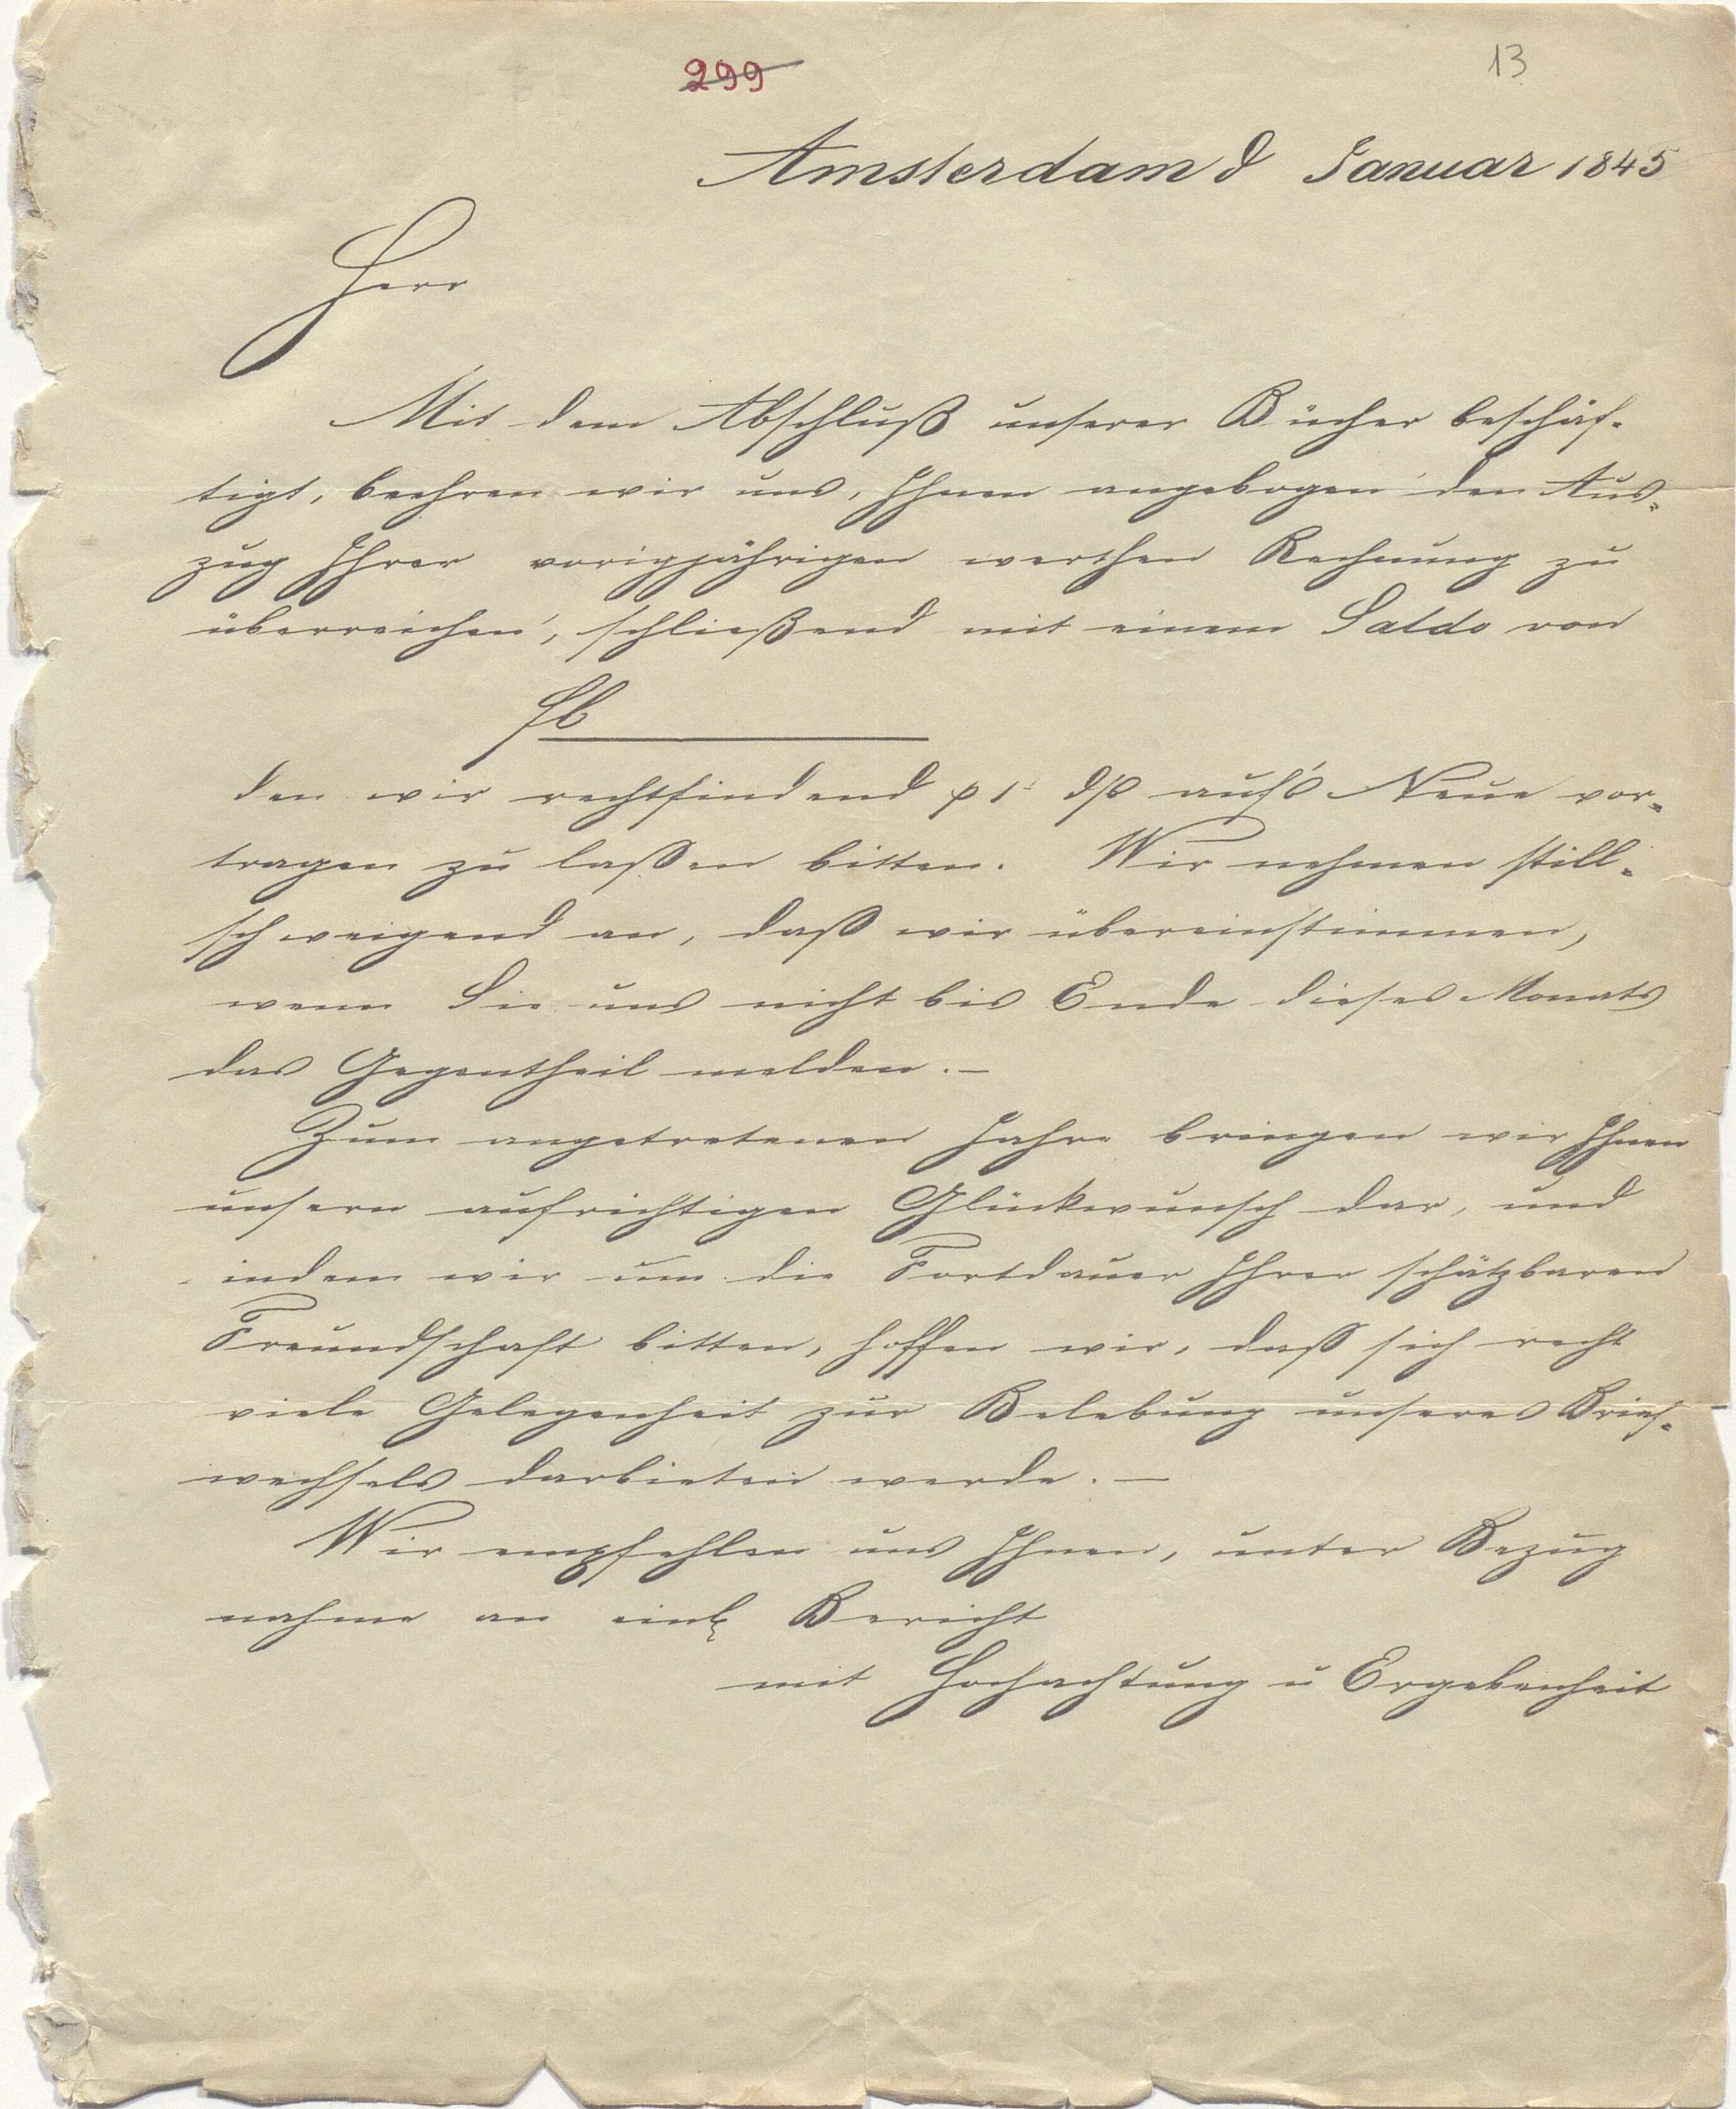 299
13
Amsterdam d Januar 1845
Herr
Mit dem Abschluß unserer Bücher beschäf-
tigt, beehren wir uns, Ihnen angebogen den Aus-
zug Ihrer vorigjährigen werthen Rechnung zu
überreichen, schließend mit einem Saldo von
den wir rechtfindend p 1 auf's Neue vor-
tragen zu laßen bitten. Wir nehmen still-
schweigend an, daß wir übereinstimmen,
wenn Sie uns nicht bis Ende dieses Monats
das Gegentheil melden. —
Zum angetretenen Jahre bringen wir Ihnen
unsern aufrichtigen Glückwunsch dar, und
indem wir um die Fortdauer Ihrer schätzbaren
Freundschaft bitten, hoffen wir, daß sich recht
viele Gelegenheit zur Belebung unseres Brief-
wechsels darbieten werde. —
Wir empfehlen uns Ihnen, unter Bezug
nahme an Bericht
mit Hochachtung u Ergebenheit